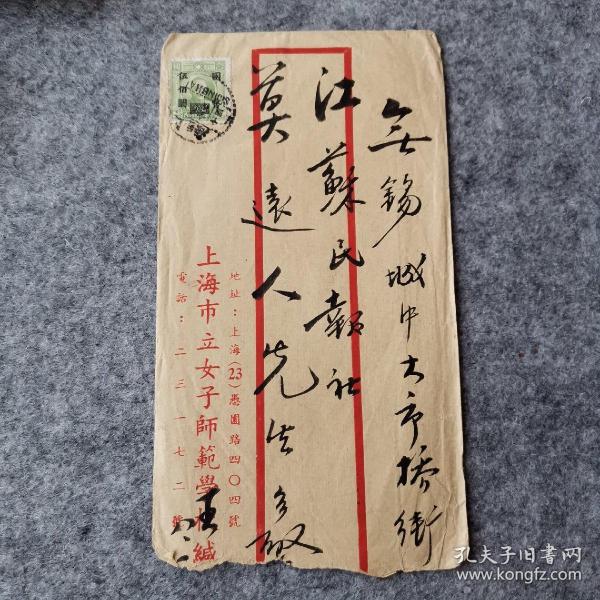 無錫城中大市橋街
江蘇民報社
莫遠人先生
地址：上海(23)愚園路四〇四號
上海市立女子師範學校緘
電話：二三一七二號
王
SHANGHAI
孔夫子旧书网
www.kongfz.com